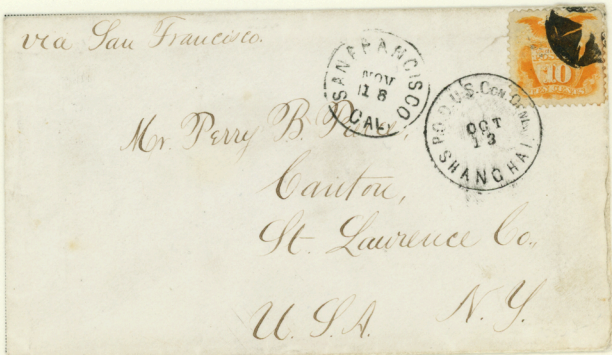 via San Francisco.
SAN FRANCISCO
NOV
18
CAL.
P.O.D.U.S. CON. GENL.
OCT
13
SHANGHAI
10
TEN CENTS
Mr. Perry B.
Canton,
St. Lawrence Co.,
N.Y.
U.S.A.